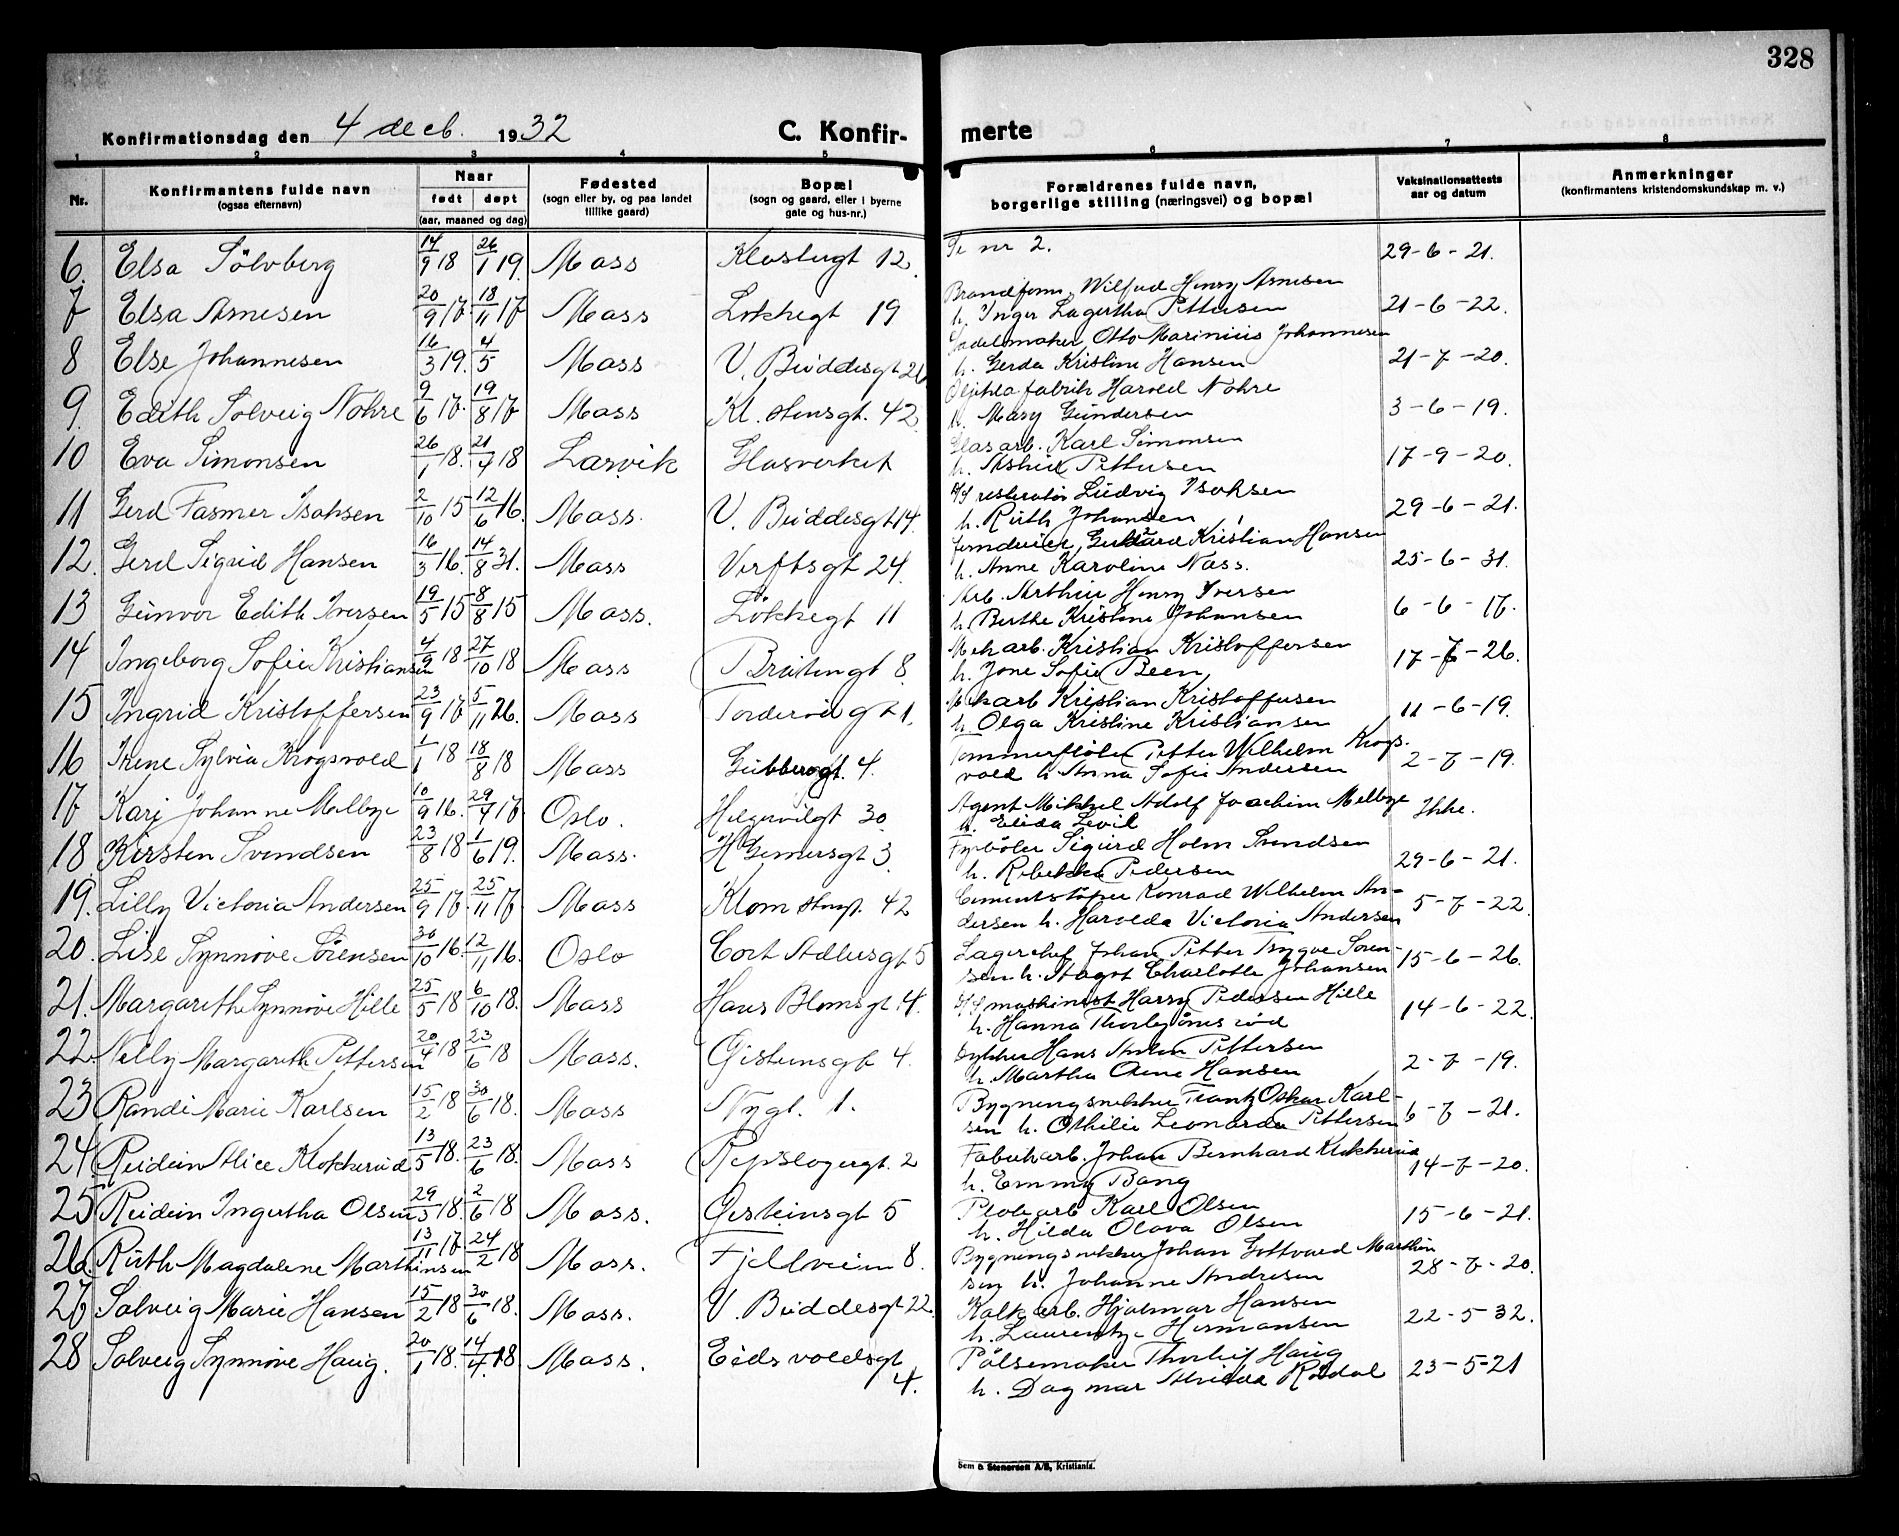 328
Konfirmationsdag den 4 decb. 1932
C. Konfir- merte
1 2 3 4 5 6 7 8
Nr.
Konfirmantens fulde navn
(ogsaa efternavn)
Naar
født døpt
(aar, maaned og dag)
Fødested
(sogn eller by, og paa landet
tillike gaard)
Bopæl
(sogn og gaard, eller i byerne
gate og hus-nr.)
Forældrenes fulde navn,
borgerlige stilling (næringsvei) og bopæl
Vaksinationsattests
aar og datum
Anmerkninger
(konfirmantens kristendomskundskap m. v.)
6. Elsa Sölvberg 14/9 18 26/1 19. Moss Klostergt 12. Se nr 2. 29-6-21.
7 Elsa Arnesen 20/9 17. 18/11 17 Moss Lökkegt 19 Wilfred Henry Arnesen
h. Inger Lagertha Pettersen 21-6-22.
8 Else Johannesen 16/3 19. 4/5 Moss V. Buddesgt Sadelmaker Otto Marinius Johannesen
h. Gerda Kristine Hansen 21-7-20.
9. Edith Solveig Nohre 9/6 17. 19/8 17 Moss Kl. stensgt. 42 fabrik Harald Nohre
h. Mary Gundersen 3-6-19.
10 Eva Simonsen 26/1 18. 21/4 18 Larvik Glasverket Glasarb. Karl Simonsen
h. Astrid Pettersen 17-9-20.
11 Gerd Fasmer Isaksen 2/10 15 12/6 16. Moss. V. Buddesgt 14. Ludvig Isaksen
h. Ruth Johansen 29-6-21.
12. Gerd Sigrid Hansen 16/3 16. 14/8 31. Moss Verftsgt 24. Jerndreier Kristian Hansen
h. Anne Karoline Næss. 25-6-31.
13 Gunvor Edith Iversen 19/5 15 8/8 15 Moss. Lökkegt 11 Arb. Arthur Henry Iversen
h. Berthe Kristine Johansen 6-6-17.
14 Ingeborg Sofie Kristiansen 4/9 18 27/10 18 Moss 8. Mek arb. Kristian Kristoffersen
h. Sofie Been 17-7-26.
15 Ingrid Kristoffersen 23/9 17 5/11 26. Moss gt 1. Mek arb Kristian Kristoffersen
h. Olga Kristine Kristiansen 11-6-19.
16 Irene Sylvia Krogsvold 1/1 18 18/8 18 Moss 4. Tømmerfløter Petter Wilhelm Krogs-
vold h. Anna Sofie Andersen 2-7-19.
17 Kari Johanne Melbye 10/9 16. 29/4 17. Oslo. 30 Agent Mikkel Adolf Joachim Melbye
h. Elida Levil Ikke.
18. Kirsten Svendsen 23/8 18 1/6 19. Moss. H Gernersgt 3. Fyrbøter Sigurd Holm Svendsen
h. Rebekka Pedersen 29-6-21.
19. Lilly Victoria Andersen 25/9 17. 25/11 17 Moss 42 Cementstöper Konrad Wilhelm An-
dersen h. Harolda Victoria Andersen 5-7-22.
20. Lise Synnöve Sörensen 30/10 16. 12/11 16. Oslo Cort Adlersgt 5 Lagerchef Johan Petter Trygve Sören-
sen h. Aagot Charlotte Johansen 15-6-26.
21. Margarethe Synnöve Hille 25/5 18 6/10 18. Moss Hans Blomsgt. 4. maskinist Harry Pedersen Hille
h. Hanna 14-6-22.
22. Nelly Margareth Pettersen 20/4 18 23/6 18 Moss. Gisteinsgt 4. Hans Anton Pettersen
h. Martha Oline Hansen 2-7-19.
23 Randi Marie Karlsen 15/2 18 30/6 18. Moss Nygt. 1. Bygningsnekker Frantz Oskar Karl-
sen h. Othilie Leonarda Pettersen 6-7-21.
24 Reidein Alice Klokkerud 13/5 18. 23/6 18. Moss Repslagergt. 2 Fabrikarb. Johan Bernhard Klokkerud
h. Emmy Bang 14-7-20.
25 Reidein Ingertha Olsen 29/3 18. 2/6 18 Moss. Gisteinsgt 5 Karl Olsen
h. Hilda Olava Olsen 15-6-21.
26. Ruth Magdalene Marthinsen 13/11 17. 24/2 18 Moss. Fjellveien 8. Bygningsnekker Johan Gottvard Marthin
sen h. Johanne Andresen 28-7-20.
27 Solveig Marie Hansen 15/2 18 30/6 18. Moss. V. Buddesgt 22. Kalkarb. Hjalmar Hansen
h. Laurentze Hermansen 22-5-32.
28 Solveig Synnöve Haug. 20/1 18. 14/4 18. Moss. Eidsvoldsgt
4. Pölsemaker Thorleif Haug
h. Dagmar Alvilda Rödal 23-5-21
Sem & Stenersen A/S, Kristiania.